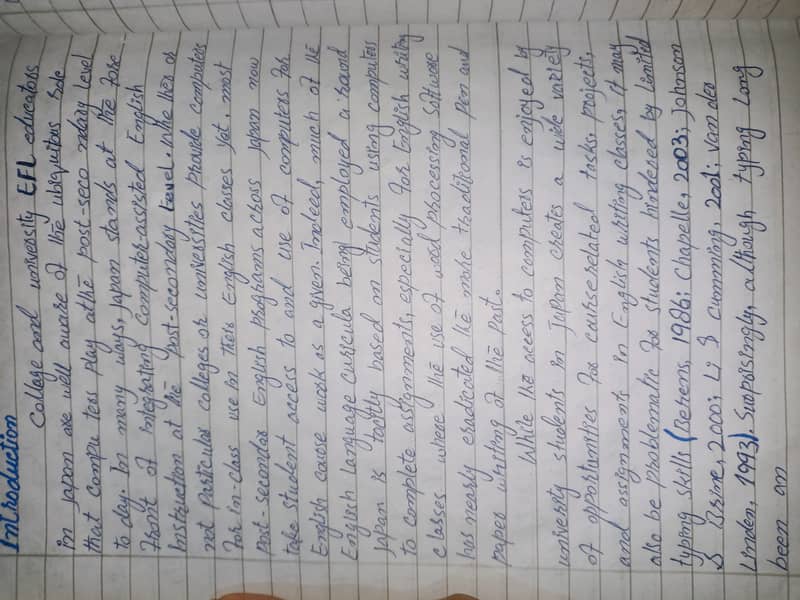 Introduction
Collage and university EFL educators
in japan are well aware of the ubiquitous role
that compu ters play at the post-seco ndary level
to day. In many ways, japan stands at the fore
front of integrating Computer-assisted English
Instruction at the post-secondary Level. whe ther or
not Particular colleges or universities Provide computers
for in-class use in their English classes yet, most
post-secondar English programs across Japan now
take student access to and use of computers for
English course work as a given. Indeed, much of the
English language curicula being employed a round
Japan is tacitly based on students using computers
to complete assignments, especially for English writing
classes where the use of word processing software
has nearly eradicated the more traditional Pen and
paper writing of the Past.
While the access to computers is enjoyed by
university students in Japan creates a wide variety
of opportunities for course related tasks, projects,
and assignments in English writing classes, it may
also be problematic for students hindered by limited
typing skills (Berens, 1986; Chapelle, 2003; Johnson
& Brine, 2000; Li & Cumming, 2001; Van der
Linden, 1993). Surprisingly, although typing Long
been an